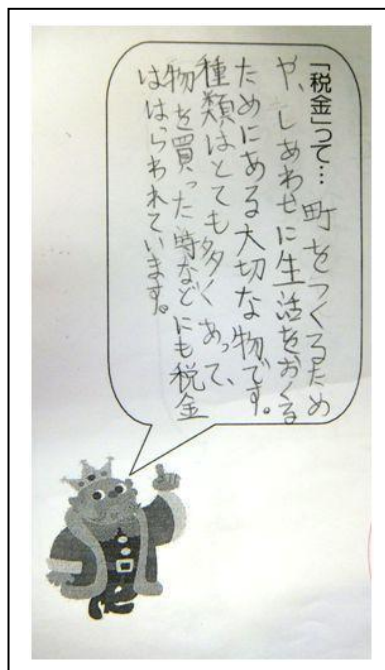 「税金」って… 町をつくるため
や、しあわせに生活をおくる
ためにある大切な物です。
種類はとても多くあって、
物を買った時などにも税金
ははらわれています。